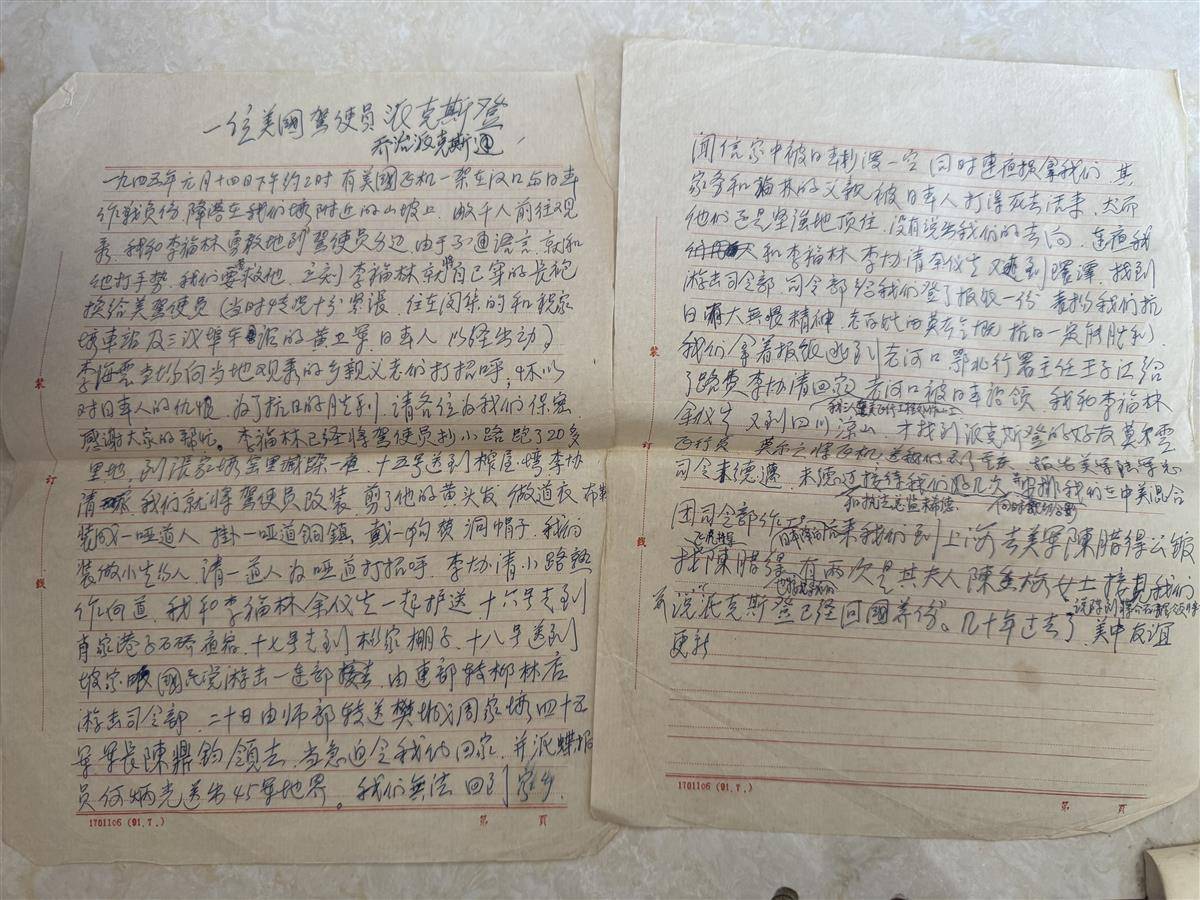 一位美國驾使员派克斯登
乔治派克斯通
一九四五年元月十四日下午约2时 有美國飞机一架在汉口与日軍
作战负伤 降落在我们塆附近的山坡上 数千人前往观
看 我和李福林勇敢地到驾使员身边 由于不通语言 就和
他打手势 我们要救他 立刻 李福林就将自己穿的长袍
换给美驾使员（当时情况十分紧张 住在闵集的和祝家
塆車站及三汊埠车站的黄卫軍日本人 以经出动）
李海雲当场向当地观看的乡亲父老们打招呼
对日本人的仇恨 为了抗日的胜利 请各位为我们保密
感谢大家的帮忙。李福林已经将驾使员抄小路跑了20多
里地 到张家塆金里藏躲一夜 十五号送到榨屋塆李协
清家 我们就将驾使员改装 剪了他的黄头发 做道衣 布鞋
装成一哑道人 掛一哑道铜鎮 戴一 帽子 我们
装做小生的人 请一道人为哑道打招呼 李协清小路熟
作向道 我和李福林余仪先一起护送 十六号走到
肖家港子石桥夜宿 十七号走到松家棚子 十八号送到
坡家 國民党游击一连部接去 由連部转柳林店
游击司令部 二十日由师部转送樊城周家塆四十五
軍軍长陳鼎钧领去 当急迫令我们回家 并派蝶报
员何炳光送出45軍地界。我们無法回到家乡
1701106 (91.7.) 第 頁
闻信家中被日軍抢漫一空 同时連夜捉拿我们 其
家爷和福林的父親被日本人打得死去活来 尤而
他们还是坚强地顶住 没有说出我们的去向 连夜我
和李福林 李协清余仪先又逃到 潭 找到
游击司令部 司令部给我们登了报纸一份 表扬我们抗
日 大無畏精神 抗日一定能胜利
我们拿着报纸逃到老河口 鄂北行署主任王子江给
了路费李协清回家 老河口被日本 领 我和李福林
余仪先 又到四川凉山 才找到派克斯登的好友莫尔雲
飞行员 莫尔 将 机送我们到了重庆 报告美軍陆軍总
司令来德邁 来德迈接待我们好几次 安排我们在中美混合
和执法总监稀德
团司令部作工 日本降伏后来我们到上海去美軍陳腊得公舘
飞虎将军
找陳腊得 有两次是其夫人陳查梅女士接見我们
说派克斯登已经回國养伤。几十年过去了 美中友谊
更新
1701106 (91.7.) 第 頁
装
订
线
装
订
线